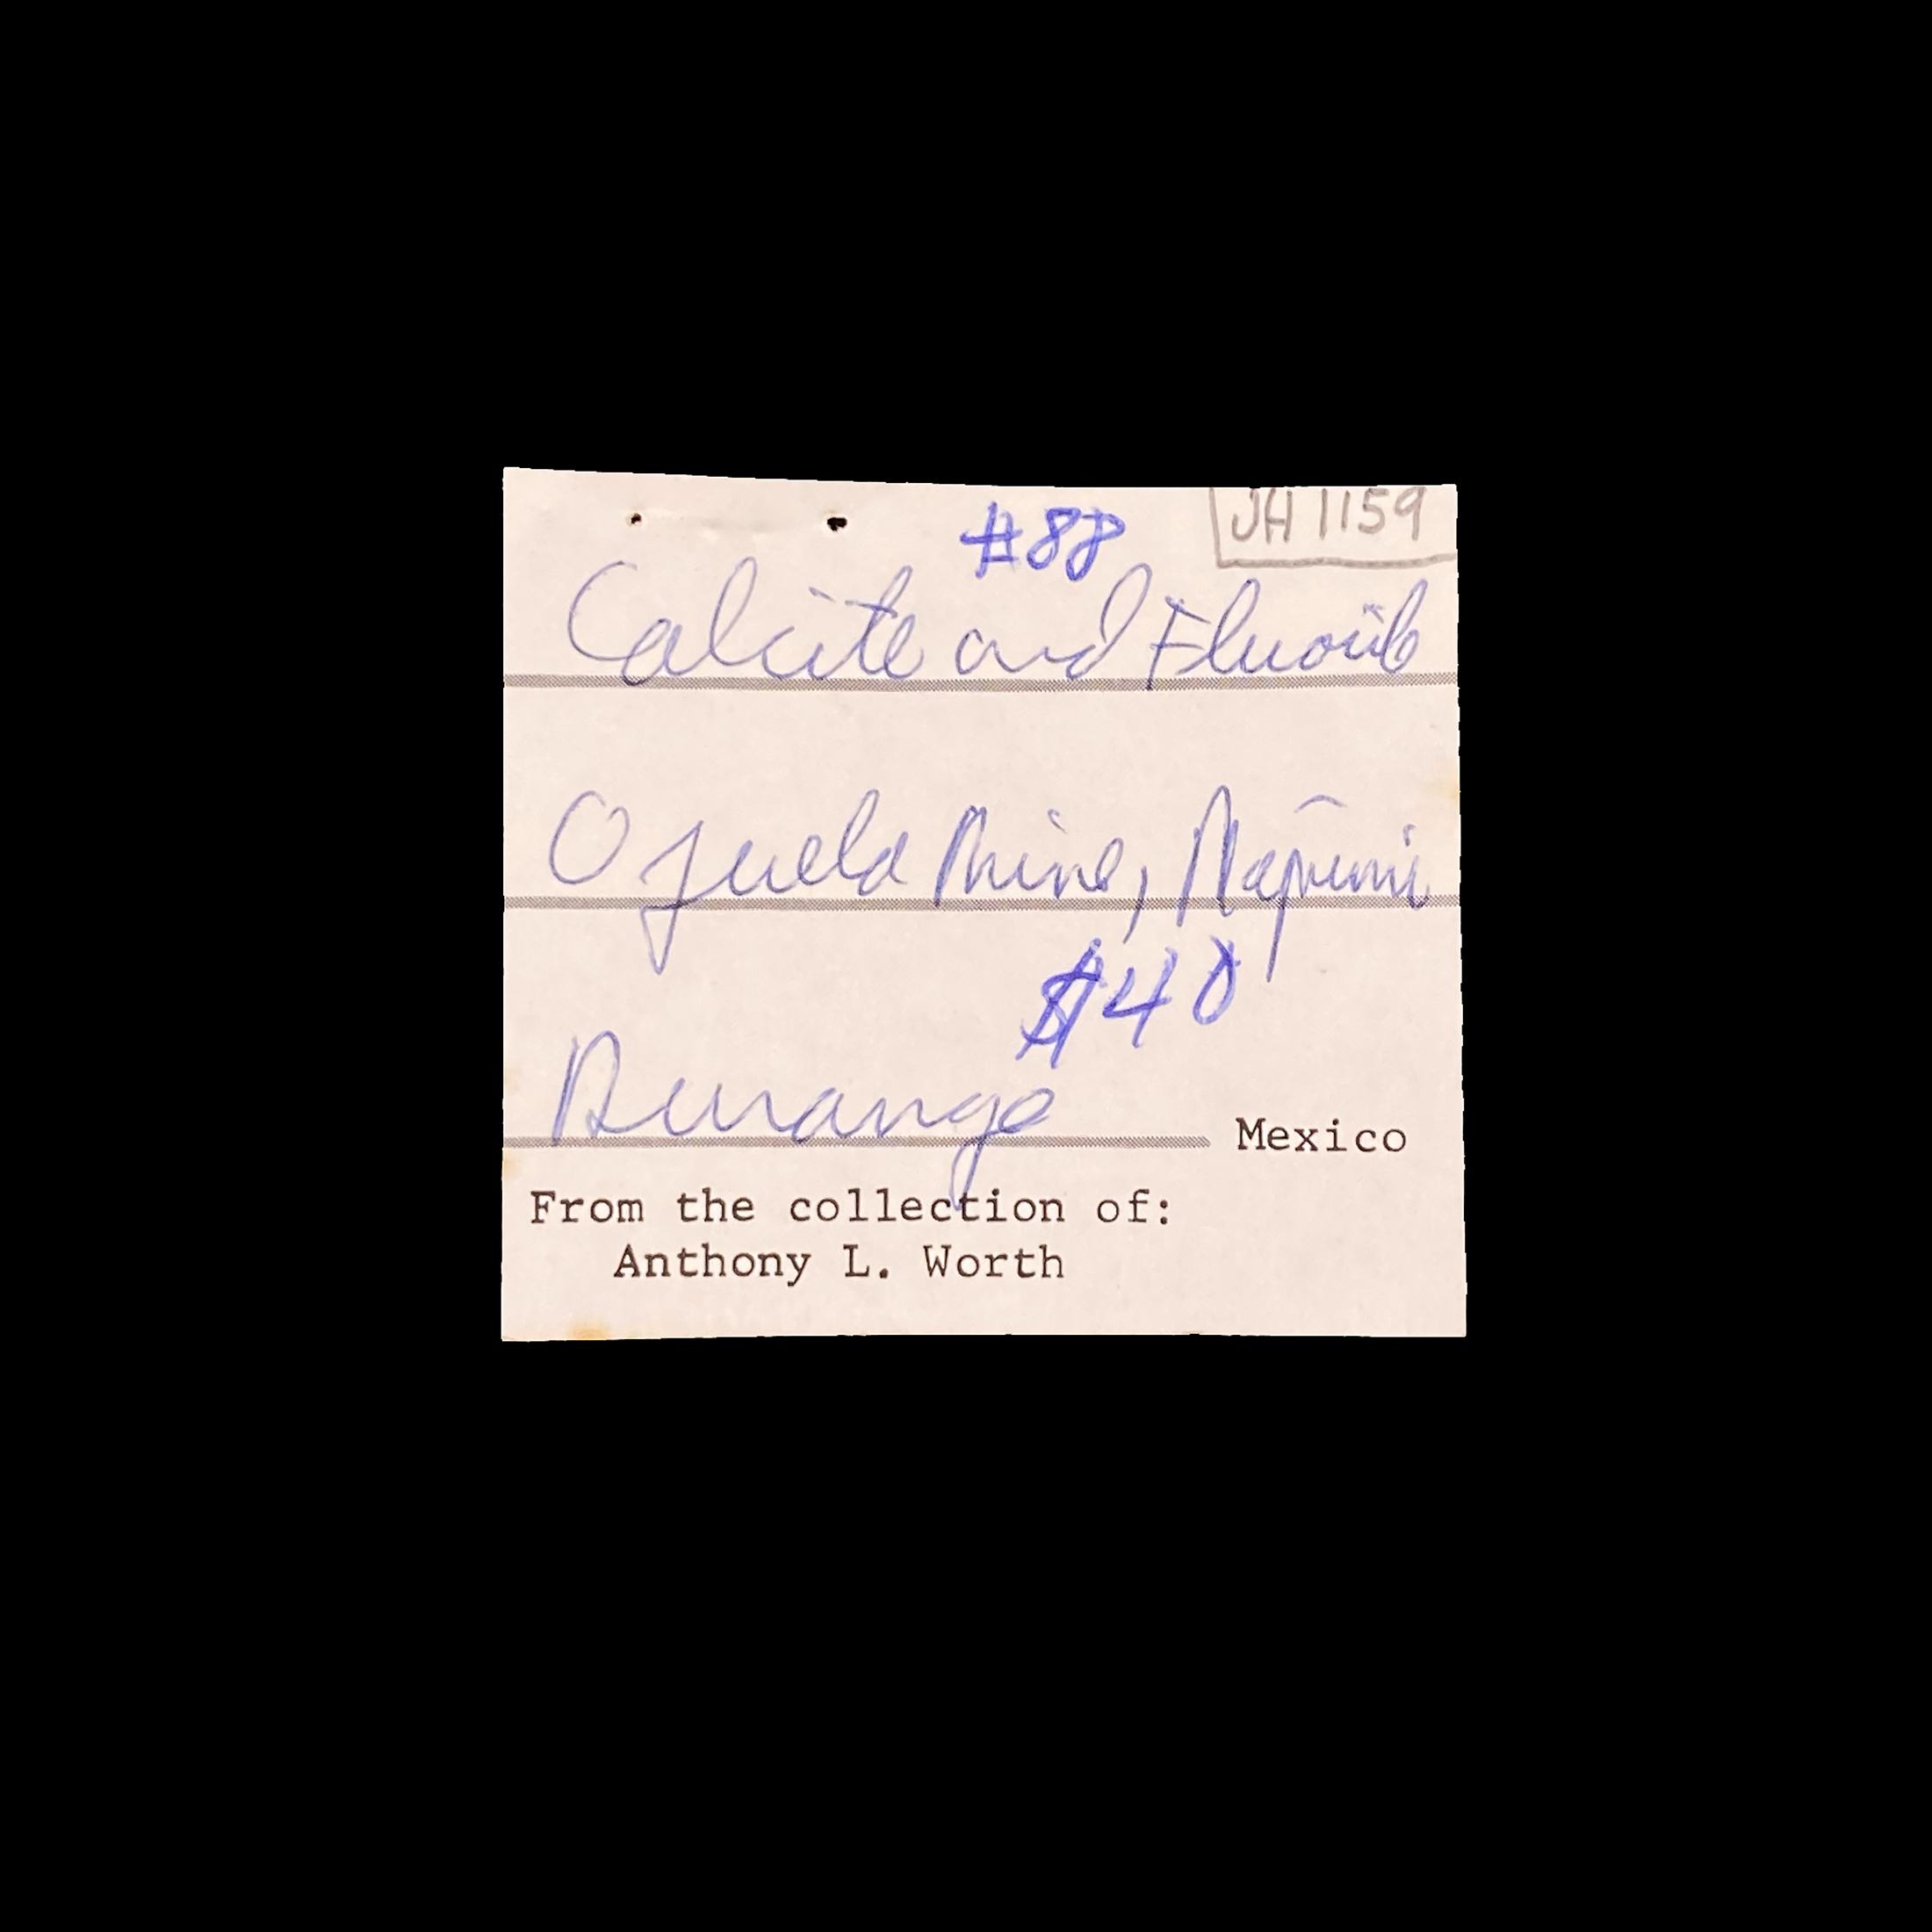 #88 JH 1159
Calcite and Fluorite
Ojuela Mine, Mapimi
$40
Durango Mexico
From the collection of:
Anthony L. Worth